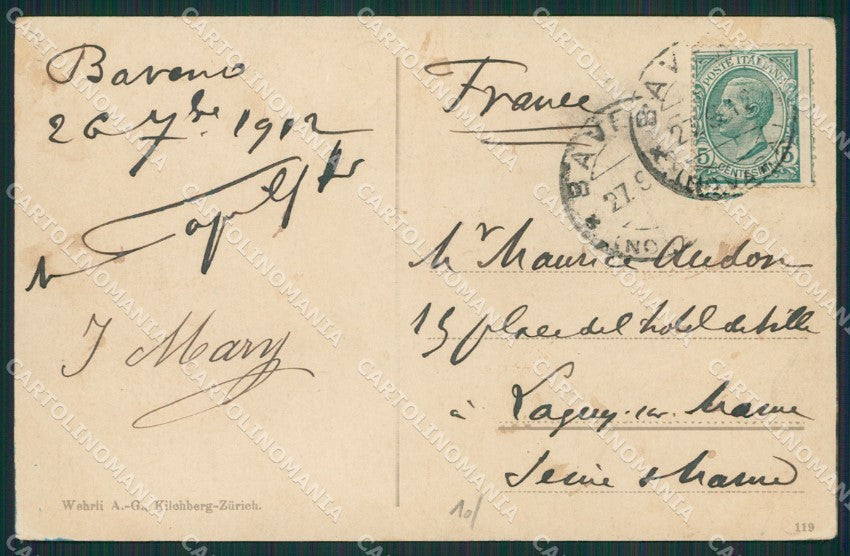 Baveno
26 7bre 1912
J Mary
Wehrli A.-G., Kilchberg-Zürich.
France
POSTE ITALIANE
5 CENTESIMI 5
BAVE
27.9
BAV
Mr Maurice Audon
15 place del hotel de ville
à Lagny-sur-Marne
Seine & Marne
10/
119
CARTOLINOMANIA